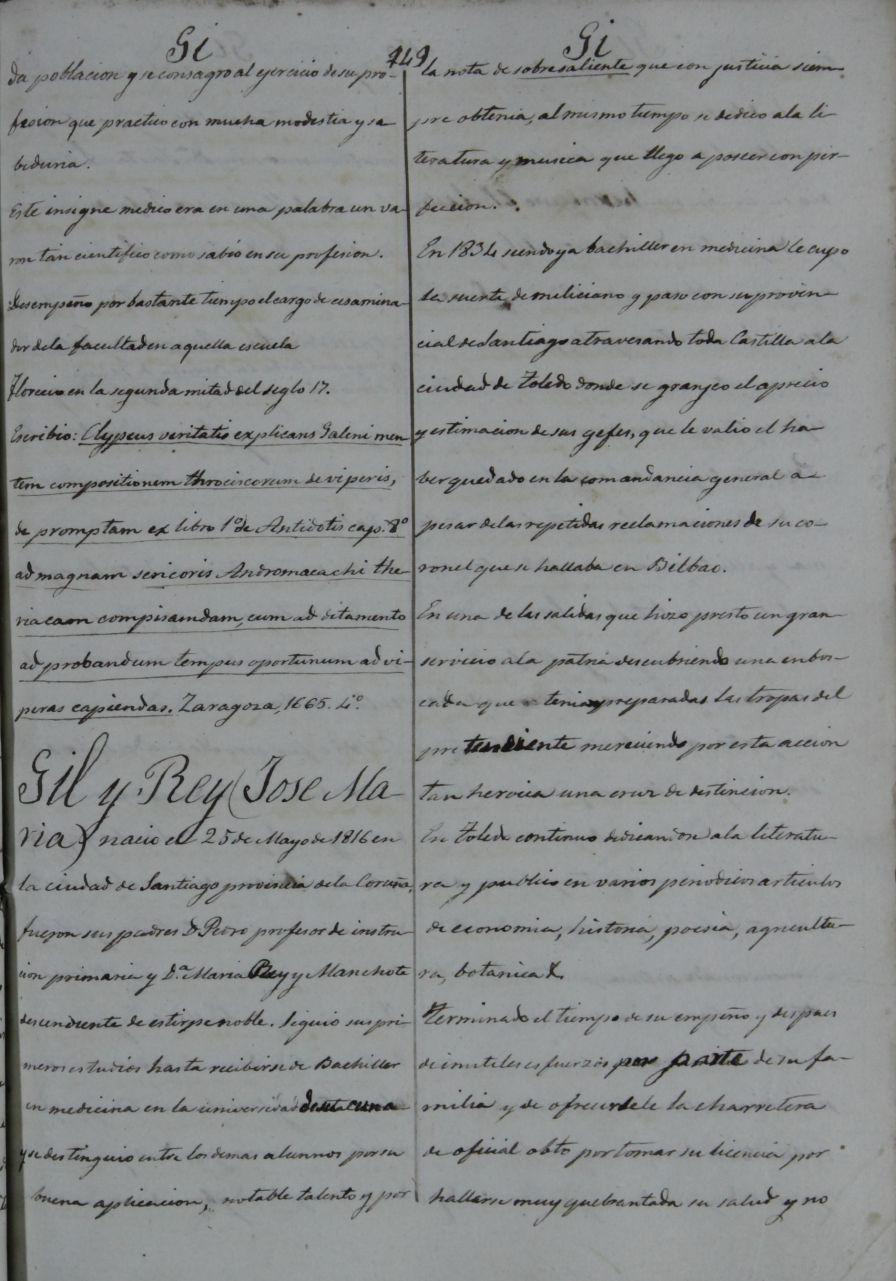 Gi
449
Gi
da poblacion y se consagro al ejercicio de su pro-
fesion que practico con mucha modestia y sa
biduria.
Este insigne medico era en una palabra un va-
ron tan cientifico como sabio en su profesion.
Desempeño por bastante tiempo el cargo de examina-
dor de la facultad en aquella escuela
Florecio en la segunda mitad del siglo 17.
Escribio: Clypeus veritatis explicans Galeni men
tem compositionem throciscorum de viperis,
de promptam ex libro 1º de Antidotis cap. 8º
ad magnam senioris Andromacachi the-
riacam compisamdam, cum ad ditamento
ad probandum tempus oportunum ad vi-
peras capiendas. Zaragoza, 1665. 4º.
Gil y Rey (Jose Ma-
ria) nacio en 25 de Mayo de 1816 en
la ciudad de Santiago provincia de la Coruña,
fueron sus padres Dn Pedro profesor de instru-
cion primaria y Dª Maria Rey y Manchote
descendiente de estirpe noble. Siguio sus pri-
meros estudios hasta recibirse de Bachiller
en medicina en la universidad de su cuna
y se distinguio entre los demas alumnos por su
buena aplicacion, notable talento y por
la nota de sobresaliente que con justicia siem-
pre obtenia, al mismo tiempo se dedico a la li-
teratura y musica que llego a poseer con per-
feccion.
En 1834 siendo ya bachiller en medicina le cupo
la suerte de miliciano y paso con su provin-
cial de Santiago atravesando toda Castilla a la
ciudad de Toledo donde se granjeo el aprecio
y estimacion de sus gefes, que le valio el ha-
ber quedado en la comandancia general a-
pesar de las repetidas reclamaciones de su co-
ronel que se hallaba en Bilbao.
En una de las salidas que hizo presto un gran
servicio a la patria descubriendo una enbos-
cada que tenian preparadas las tropas del
pretendiente mereciendo por esta accion
tan heroica una cruz de distincion.
En Toledo continuo dedicandon a la literatu-
ra y publico en varios periodicos articulos
de economia, historia, poesia, agricultu-
ra, botanica &
Terminado el tiempo de su empeño y despues
de inutiles esfuerzos por parte de su fa-
milia y de ofrecersele la charretera
de oficial obto por tomar su licencia por
hallarse muy quebrantada su salud y no